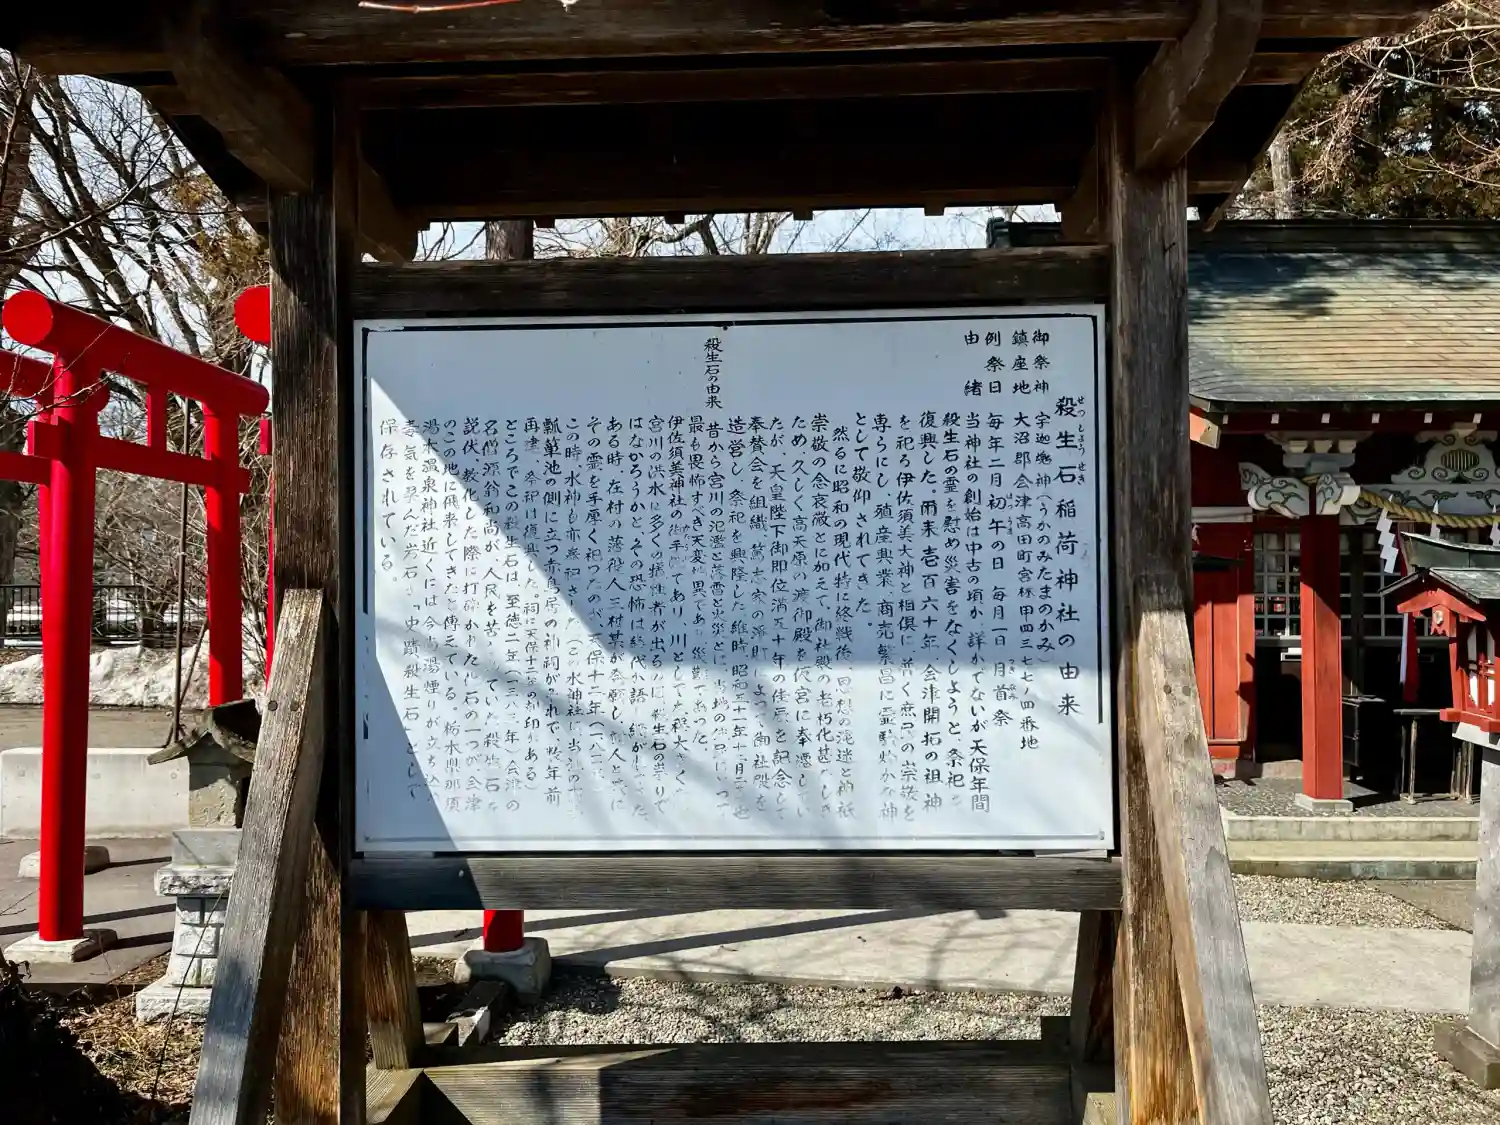 殺生石稲荷神社の由来
せっしょうせき
御祭神 宇迦魂神(うかのみたまのかみ)
鎮座地 大沼郡会津高田町宮林甲四三七七ノ四番地
例祭日 毎年二月初午の日 毎月一日 月首祭
はつうま
つきなみ
由緒 当神社の創始は中古の頃か、詳かでないが天保年間
殺生石の霊を慰め災害をなくしようと、祭祀を
復興した。爾来壱百六十年、会津開拓の祖神
を祀ろ伊佐須美大神と相倶に、 く庶 の崇敬を
専らにし、殖産興業、商売繁昌に霊験灼かな神
として敬仰されてきた。
然るに昭和の現代特に終戦後、思想の混迷と神祇
崇敬の念衰微とに加えて、御社殿の老朽化甚 しき
ため、久しく高天原の渡御殿を仮宮に奉遷してい
たが、天皇陛下御即位満五十年の佳辰を記念して
奉賛会を組織、篤志家の浄財によって、御社殿を
造営し、祭祀を興隆した。維時昭和五十一年十二月二 也
殺生石の由来
昔から宮川の氾濫と落雷と火災とは、当地の住民にとって
最も畏怖すべき天変地異であり災難であった。
伊佐須美神社の 手 であり、川としても 大きく、
宮川の洪水に多くの犠牲者が出るのは、殺生石の祟りで
はなかろうかと、その恐怖は総代が語り 。
ある時、在村の落役人三村某が発願し、 人と共に
その霊を手厚く祀ったのが天保十二年(一八 )
この時、水神も亦奉祀された(この水神社は当
瓢箪池の側に立つ赤鳥居の神祠がそれで、数年前
再建、祭祀は復興した。祠に天保十二年の刻印がある)
ところでこの殺生石は、至徳二年(一三八三年)会津の
名僧源翁和尚が、人民を苦しめていた殺生石を
説伏、教化した際に打砕かれた 石の一つが会津
のこの地に飛来してきたと傳えている。栃木県那須
湯本温泉神社近くには今尚湯煙りが立ち込
毒気を孕んだ岩石が「史蹟殺生石」として
保存されている。